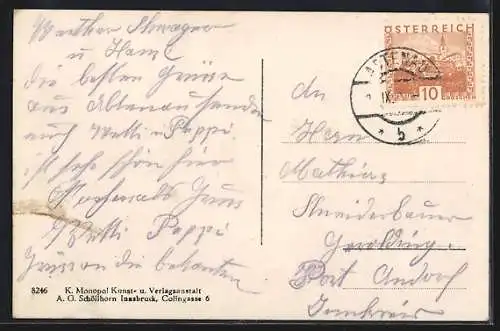 Werther Schwager
u Hansl
die besten Grüsse
aus Altenau senden
euch Wetti u Peppi.
ist sehr schön hier
Nochmals Gruss
Wetti Peppi
Grüsse die bekanten
8246 K. Monopol Kunst- u. Verlagsanstalt
A. G. Schöllhorn Innsbruck, Colingasse 6
ÖSTERREICH
10
IX
* b *
An
Herrn
Mathias
Schneiderbauer
Geroldin
Post Andorf
Innkreis